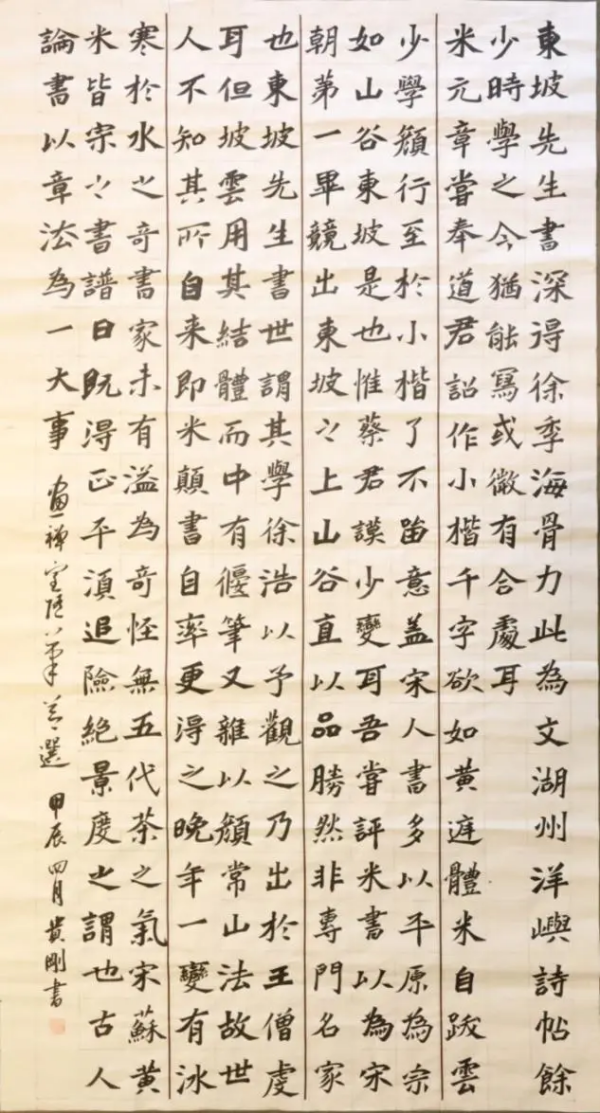 東坡先生書深得徐季海骨力此為文湖州洋嶼詩帖餘
少時學之今猶能寫或微有合處耳
米元章嘗奉道君詔作小楷千字欲如黃庭體米自跋雲
少學顏行至於小楷了不留意蓋宋人書多以平原為宗
如山谷東坡是也惟蔡君謨少變耳吾嘗評米書以為宋
朝第一畢競出東坡之上山谷直以品勝然非專門名家
也東坡先生書世謂其學徐浩以予觀之乃出於王僧虔
耳但坡雲用其結體而中有偃筆又雜以顏常山法故世
人不知其所自来即米顛書自率更得之晚年一變有冰
寒於水之奇書家未有溢為奇怪無五代茶之氣宋蘇黃
米皆宗之書譜曰既得正平湏追險絕景度之謂也古人
論書以章法為一大事 畫禪室隨筆 選 甲辰四月 貴剛書